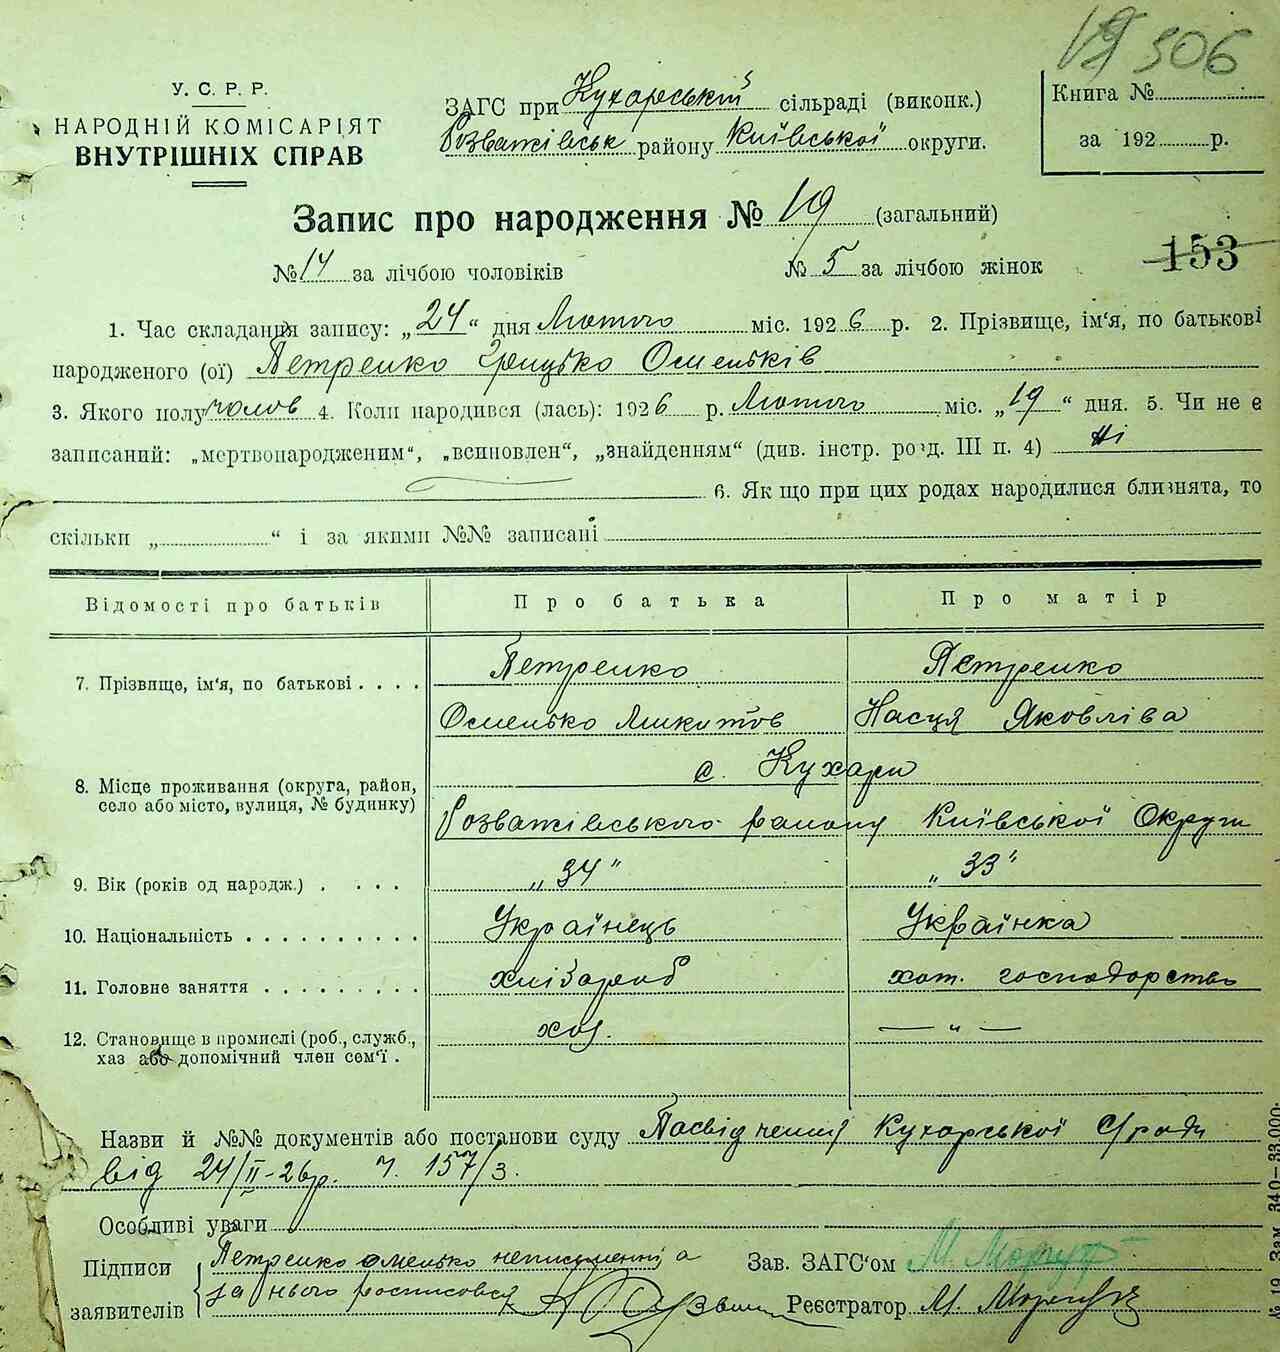 306
У. С. Р. Р.
НАРОДНІЙ КОМІСАРІЯТ
ВНУТРІШНІХ СПРАВ
ЗАГС при Кухарській сільраді (виконк.)
Розважівськ району Київської округи.
Книга №
за 192 р.
Запис про народження № 19 (загальний)
№ 14 за лічбою чоловіків № 5 за лічбою жінок
153
1. Час складання запису: „24“ дня Лютого міс. 1926 р. 2. Прізвище, ім'я, по батькові
народженого (ої) Петренко Грицько Омельків
3. Якого полу чолов 4. Коли народився (лась): 1926 р. Лютого міс. „19“ дня. 5. Чи не є
записаний: „мертвонародженим“, „всиновлен“, „знайденням“ (див. інстр. розд. III п. 4) Ні
6. Як що при цих родах народилися близнята, то
скільки „ “ і за якими №№ записані
Відомості про батьків Про батька Про матір
7. Прізвище, ім'я, по батькові . . . . Петренко Петренко
Омелько Микитов Насця Яковліва
8. Місце проживання (округа, район,
село або місто, вулиця, № будинку)
с. Кухари
Розважівського району Київської Округи
9. Вік (років од народж.) . . . . „34“ „33“
10. Національність . . . . . . . . . . Українець Українка
11. Головне заняття . . . . . . . . . хлібароб хат. господарство
12. Становище в промислі (роб., служб.,
хаз або допомічний член сем'ї .
хоз. — „ —
Назви й №№ документів або постанови суду Посвідчення Кухарської С/ради
від 24/II-26р. ч. 157/3.
Особливі уваги
Підписи
заявителів
Петренко омелько неписьменні, а
за нього росписовся
Зав. ЗАГС'ом
Реєстратор М.
№ 19 Зам. 340–33.000.